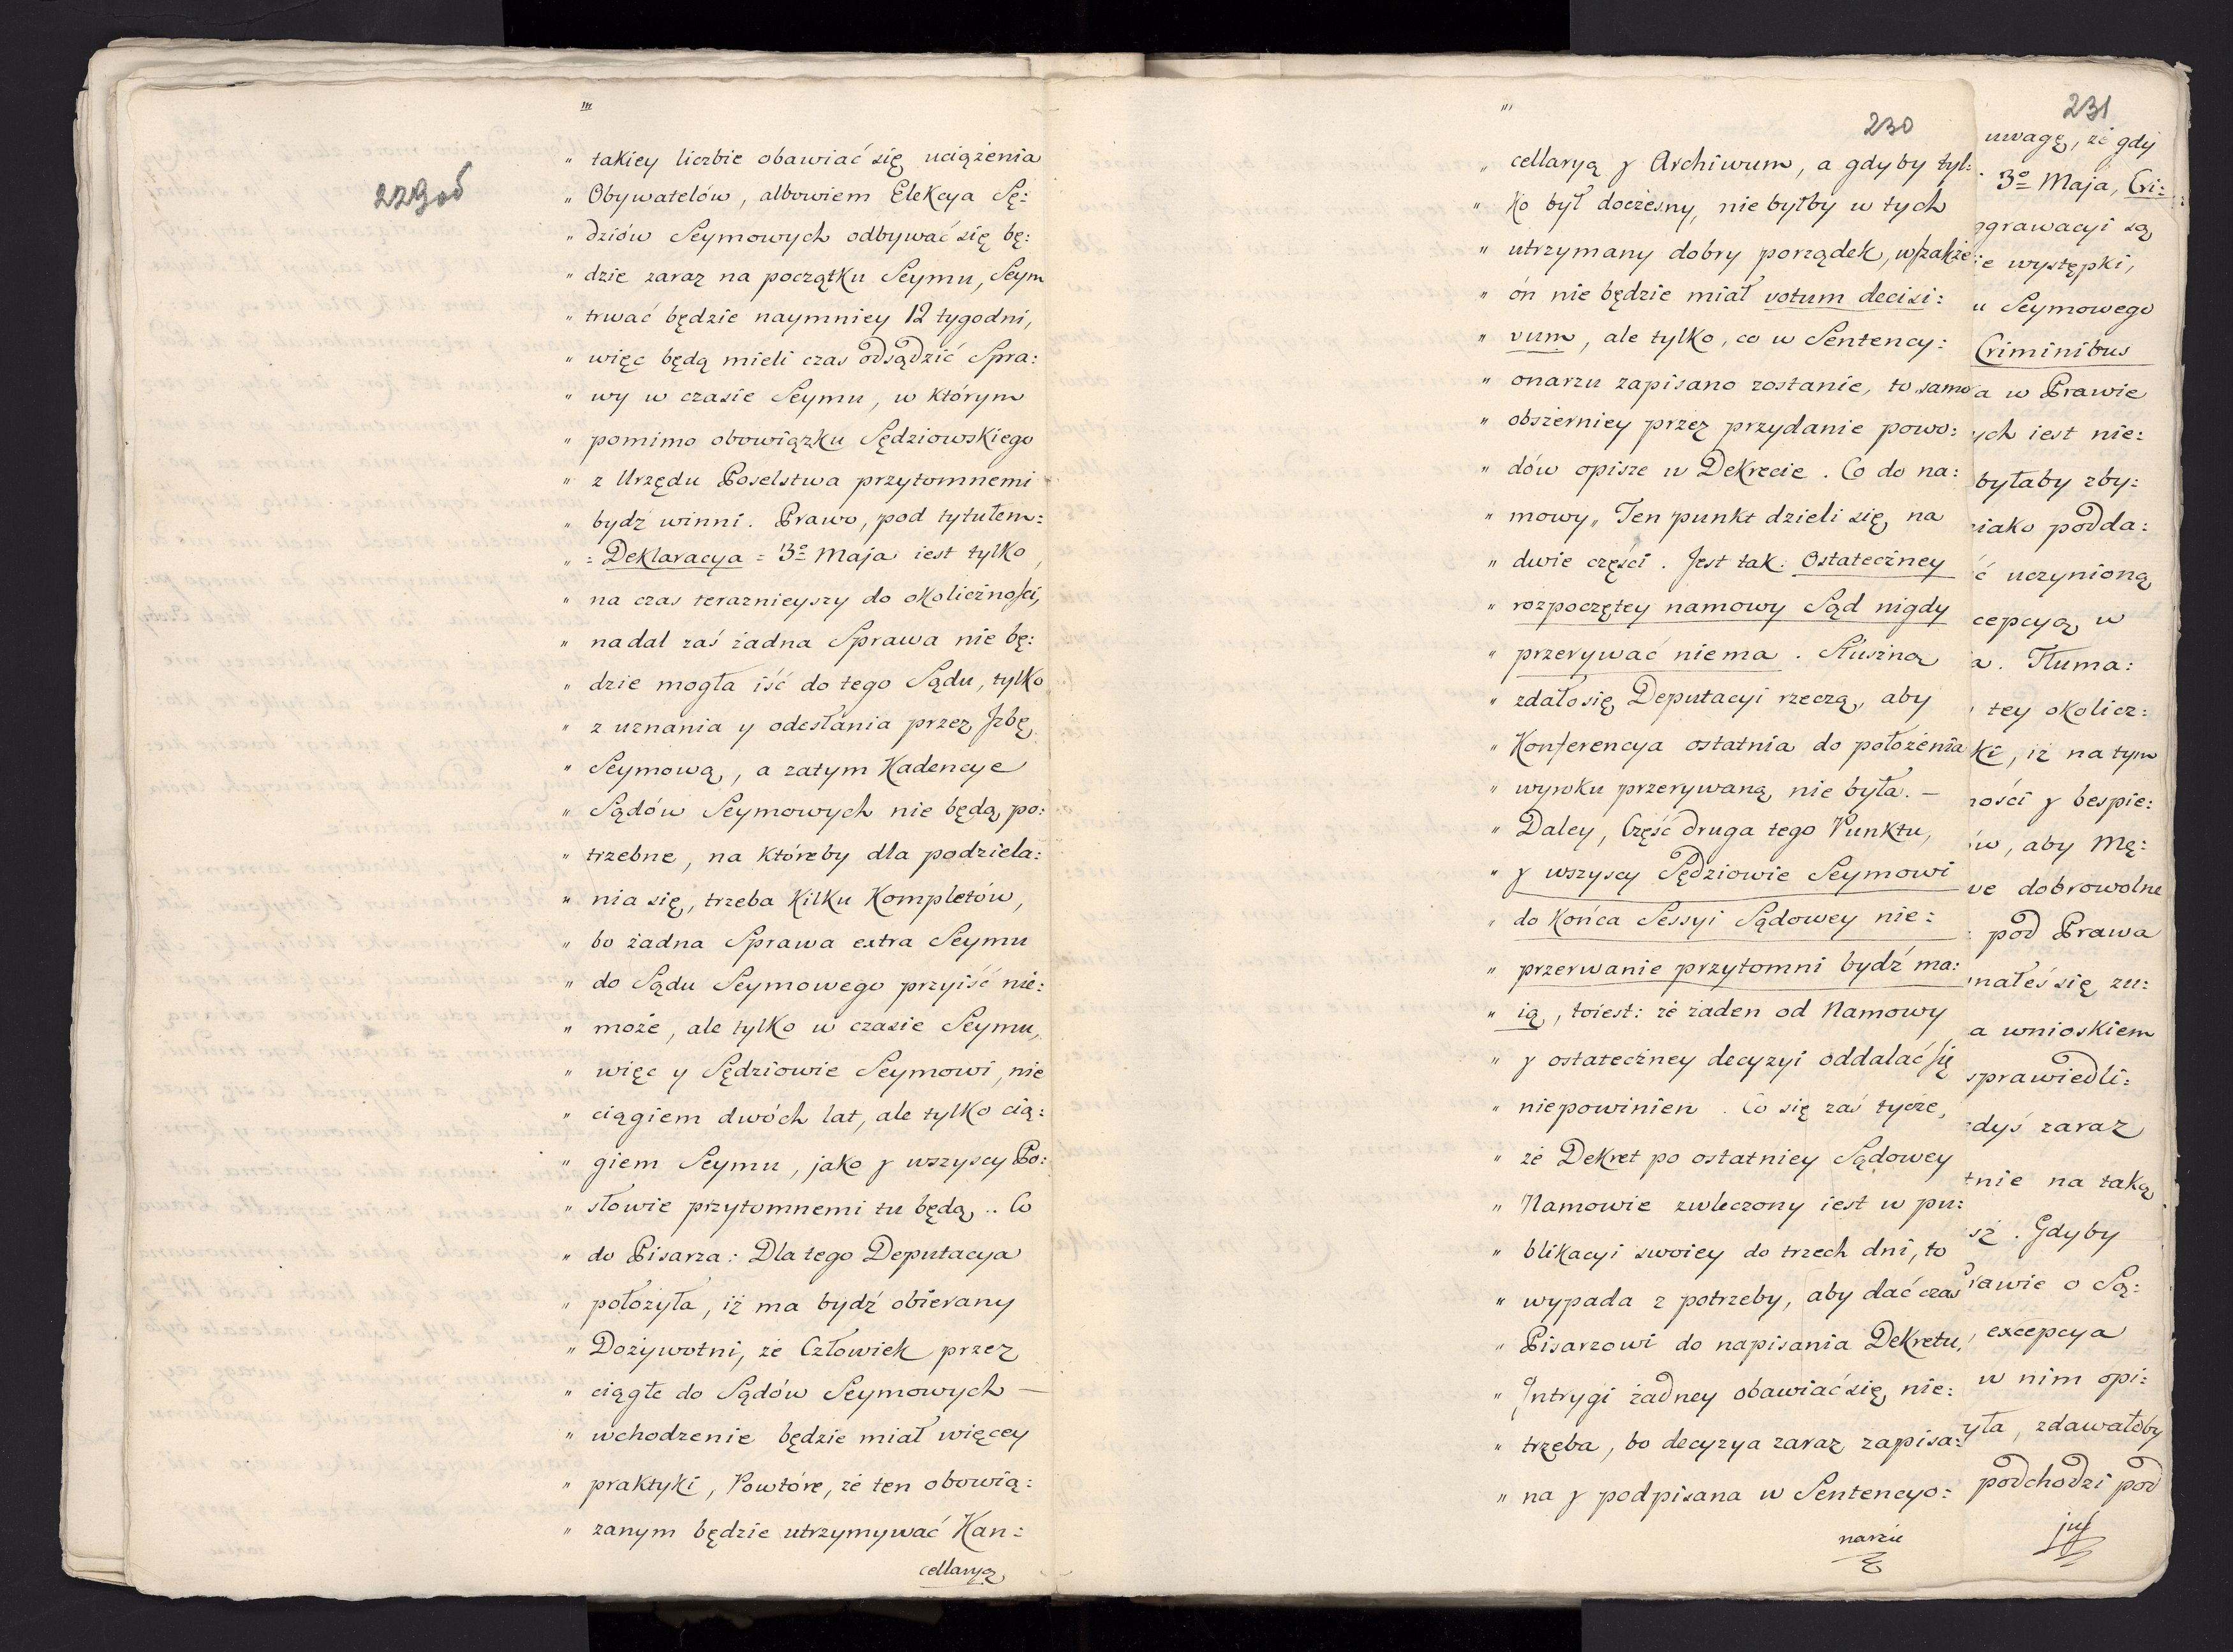 229od
"' 
" takiey liczbie obawiać się uciążenia
" Obywatelów, albowiem Elekcya Sę:
" dziów Seymowych odbywać się bę:
" dzie zaraz na początku Seymu, Seym
" trwać będzie naymniey 12 tygodni,
" więc będą mieli czas odsądzić Spra:
" wy w czasie Seymu, w którym
" pomimo obowiązku Sędziowskiego
" z Urzędu Poselstwa przytomnemi
" bydź winni. Prawo, pod tytułem:
" = Deklaracya = 3o Maja iest tylko
" na czas teraznieyszy do okoliczności,
" nadal zaś żadna Sprawa nie bę:
" dzie mogła iść do tego Sądu, tylko
" z uznania y odesłania przez Jzbę
" Seymową, a zatym Kadencye
" Sądów Seymowych nie będą po:
" trzebne, na któreby dla podziela:
" nia się, trzeba kilku Kompletów,
" bo żadna Sprawa extra Seymu
" do Sądu Seymowego przyiść nie:
" może, ale tylko w czasie Seymu,
" więc y Sędziowie Seymowi, nie
" ciągiem dwóch lat, ale tylko cią:
" giem Seymu, jako y wszyscy Po:
" słowie przytomnemi tu będą .. Co
" do Pisarza: Dla tego Deputacya
" położyła, iż ma bydź obierany
" Dożywotni, że Człowiek przez
" ciągłe do Sądów Seymowych —
" wchodzenie będzie miał więcey
" praktyki, Powtóre, że ten obowią:
" zanym będzie utrzymywać Kan:
cellaryą
"'
230
" cellaryą y Archiwum, a gdyby tyl:
" ko był doczesny, nie byłby w tych
" utrzymany dobry porządek, wszakże
" ón nie będzie miał votum decisi:
" vum, ale tylko, co w Sentency:
" onarzu zapisano zostanie, to samo
" obszerniey przez przydanie powo:
" dów opisze w Dekrecie. Co do na:
" mowy„ Ten punkt dzieli się na
" dwie części. Jest tak: Ostateczney
" rozpoczętey namowy Sąd nigdy
" przerywać niema. Słuszną
" zdało się Deputacyi rzeczą, aby
" Konferencya ostatnia do położenia
" wyroku przerywaną nie była. —
" Daley, Część druga tego Punktu,
" y wszyscy Sędziowie Seymowi
" do końca Sessyi Sądowey nie:
" przerwanie przytomni bydź ma:
" ią, toiest: że żaden od Namowy
" y ostateczney decyzyi oddalać się
" niepowinien. Co się zaś tycze,
" że Dekret po ostatniey Sądowey
" Namowie zwleczony iest w pu:
" blikacyi swoiey do trzech dni, to
" wypada z potrzeby, aby dać czas
" Pisarzowi do napisania Dekretu,
" Jntrygi żadney obawiać się nie:
" trzeba, bo decyzya zaraz zapisa:
" na y podpisana w Sentencyo:
narzu
231
uwagę, że gdy
3o Maja, Cri:
ggrawacyi są
ie występki,
u Seymowego
Criminibus
a w Prawie
ych iest nie:
byłaby zby:
iako podda:
ć uczynioną
cepcyą w
a. Tłuma:
tey okolicz:
ki, iż na tym
ności y bespie:
ów, aby Mę:
we dobrowolne
pod Prawa
nałeś się zu:
a wnioskiem
sprawiedli:
dyś zaraz
tnie na taką
sz. Gdyby
rawie o Są:
, excepcya
w nim opi:
yła, zdawałoby
podchodzi pod